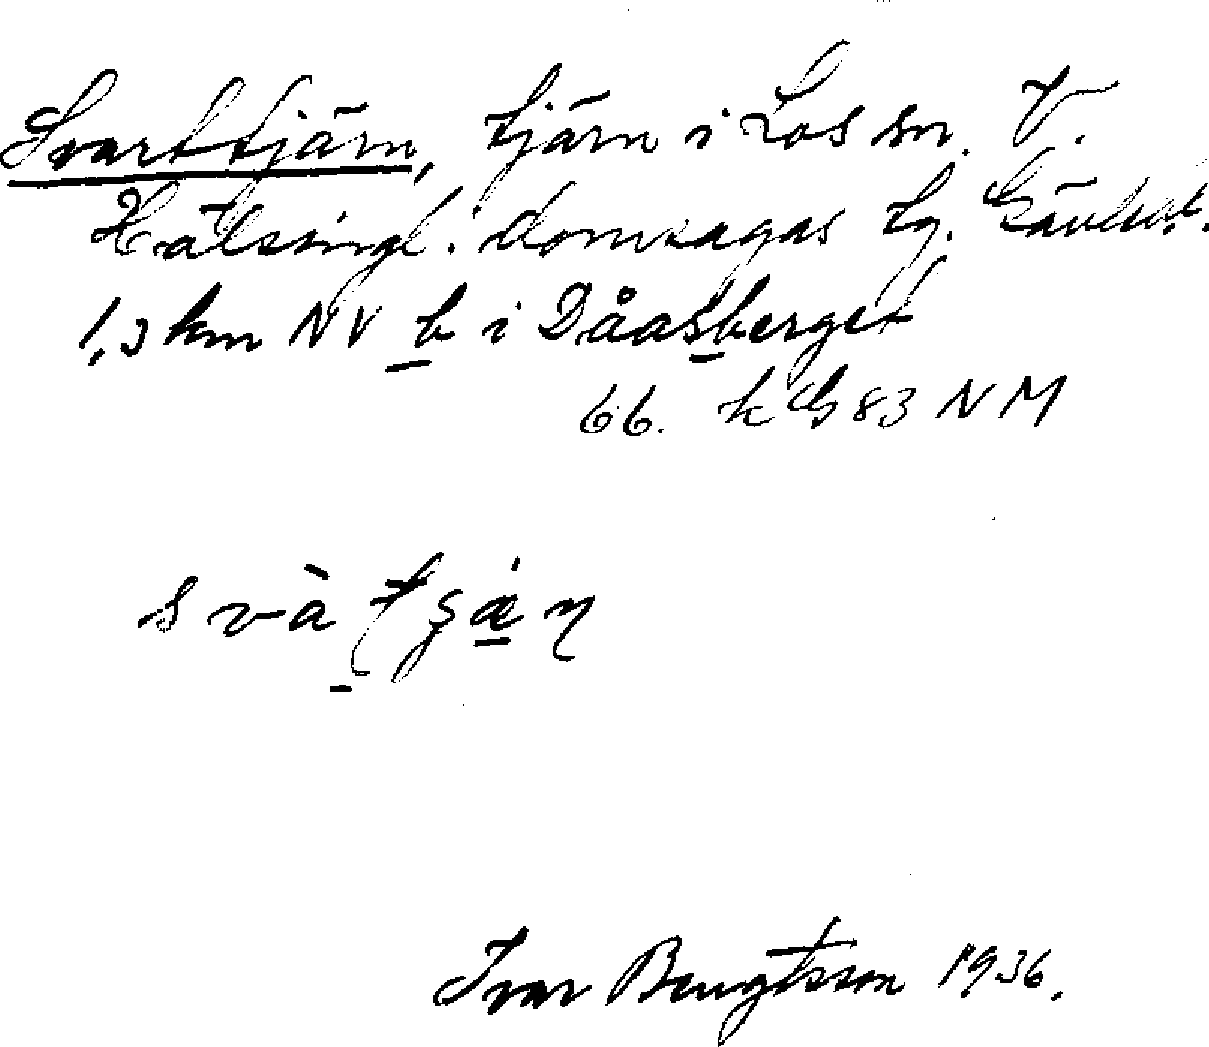 Svarttjärn, tjärn i Los sn. V.
Hälsingl. domsagas tg. Gävleb.
1,3 km NV b i Dåasberget
66. k G 83 N M
Ivar Bengtsson 1936.